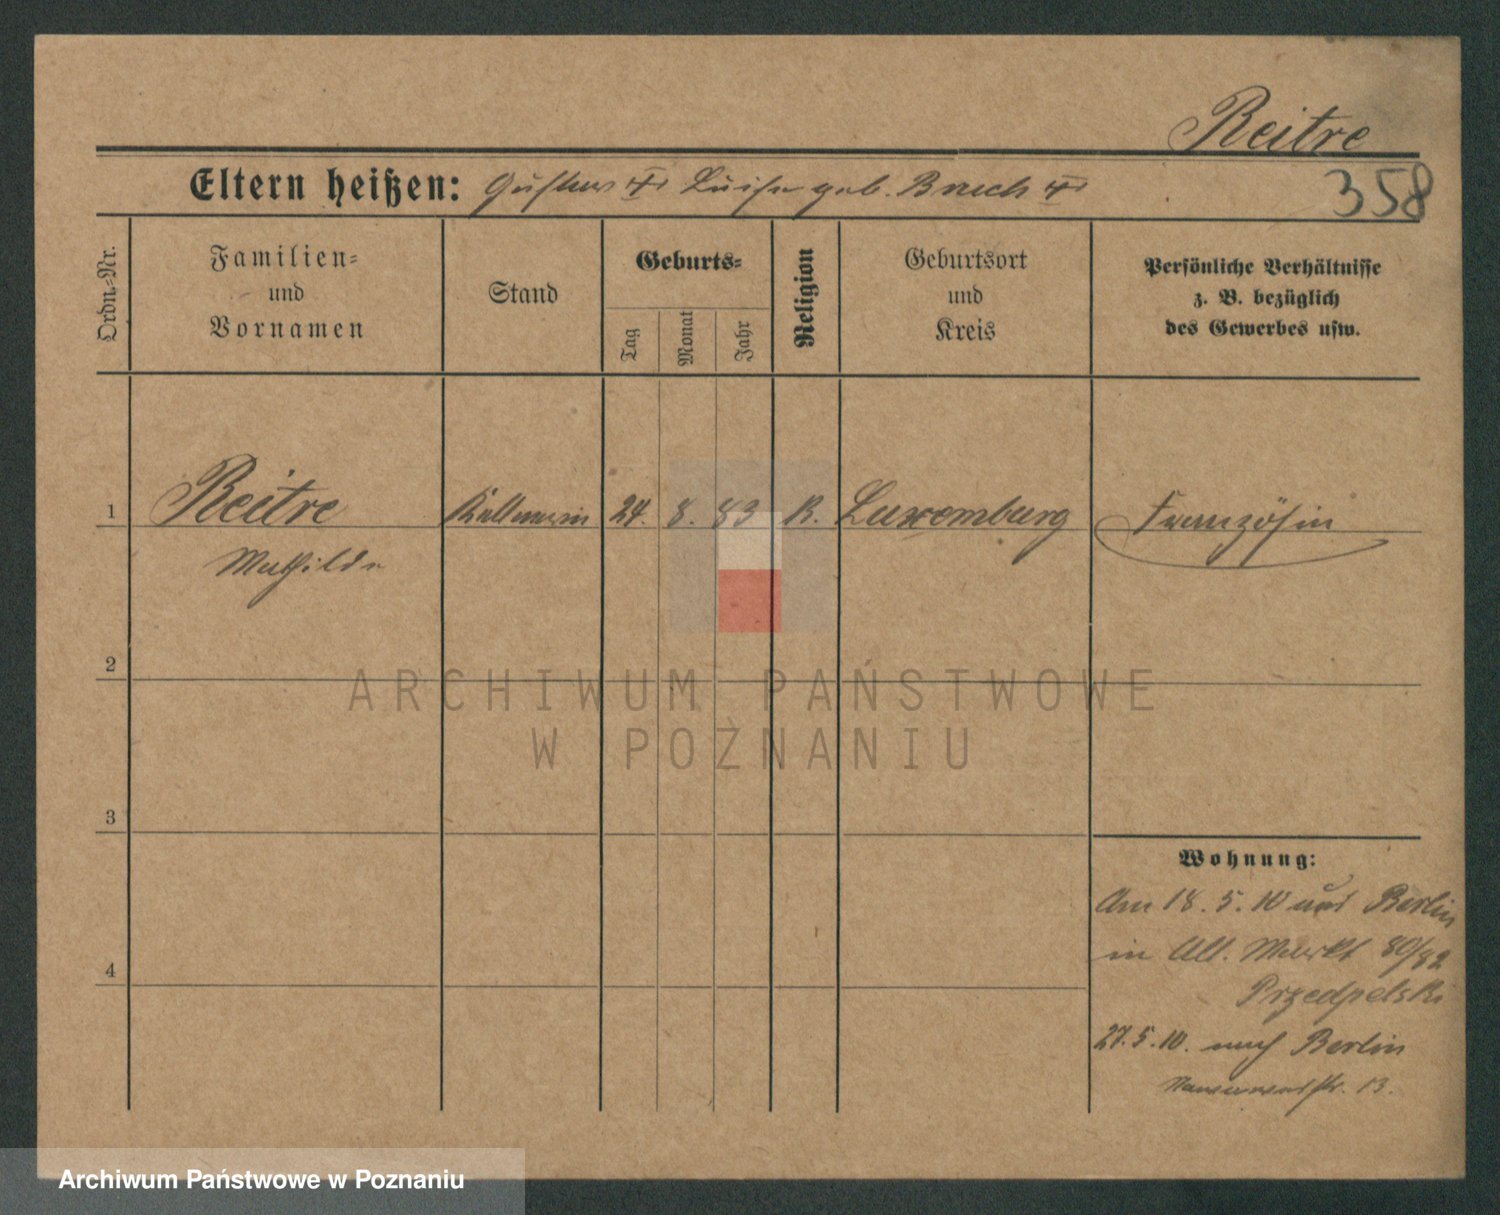 Reitre
358
Eltern heißen: Gustav Luise geb. Bruch
Ordn.-Nr.
Familien-
und
Vornamen
Stand
Geburts-
Tag
Monat
Jahr
Religion
Geburtsort
und
Kreis
Persönliche Verhältnisse
z. B. bezüglich
des Gewerbes usw.
1 Reitre Kellnerin 24. 8. 83 R. Luxemburg Französin
Mathilde
2
3
4
Wohnung:
Am 18. 5. 10 Berlin
in Alt. Markt 80/82
Przedpelski
27. 5. 10. nach Berlin
13.
ARCHIWUM PAŃSTWOWE
W POZNANIU
Archiwum Państwowe w Poznaniu